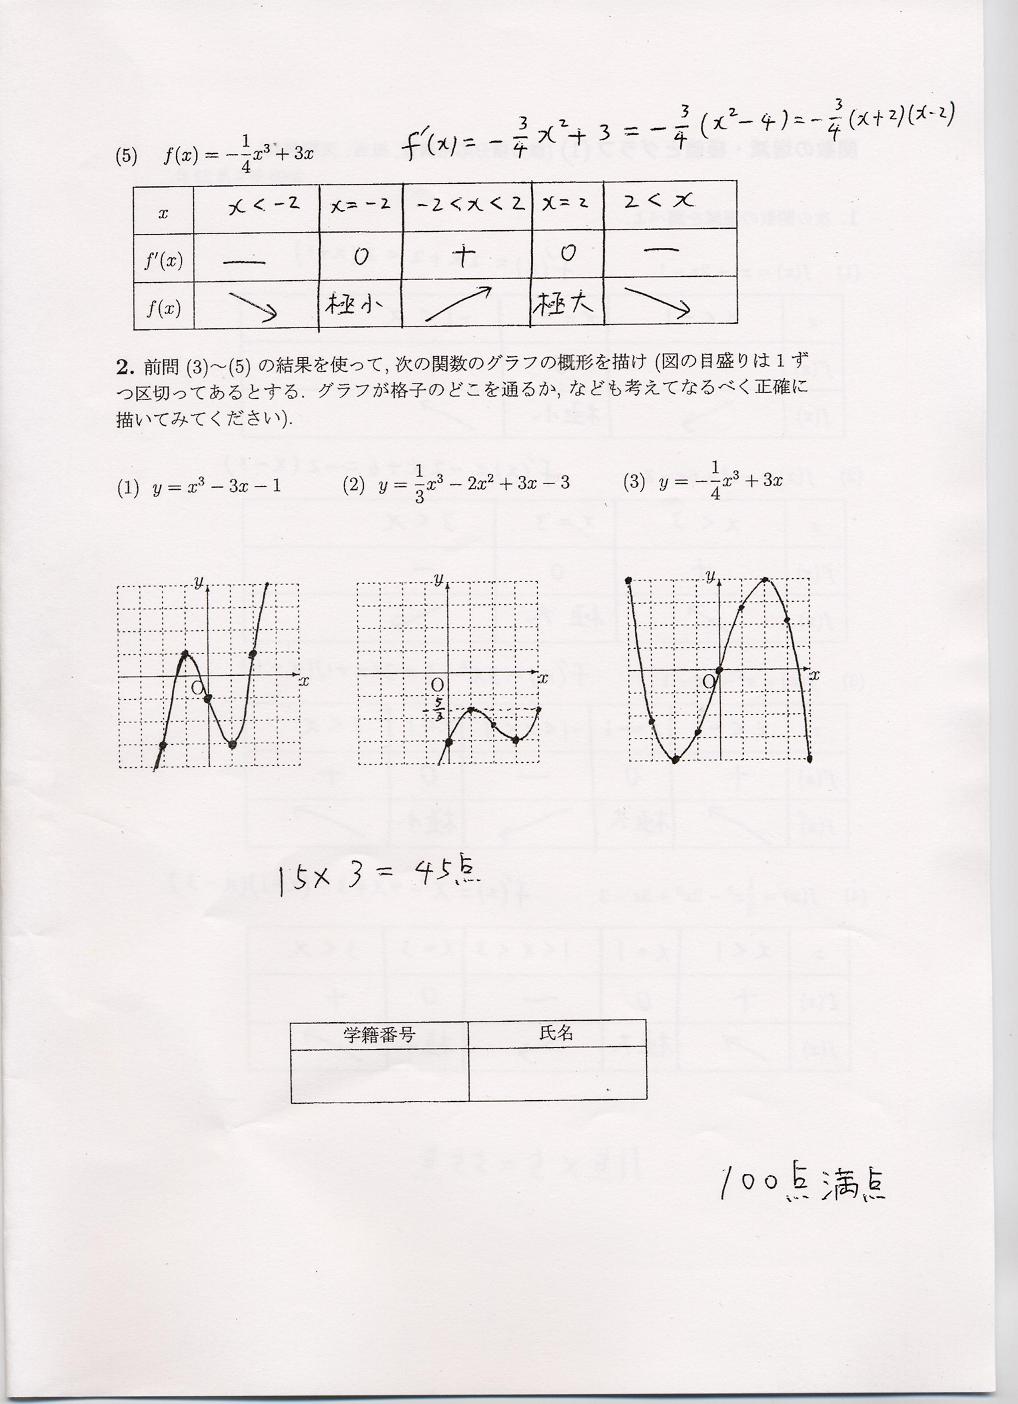 (5) f(x) = −1/4x³ + 3x f'(x) = − 3/4 x² + 3 = − 3/4 (x² − 4) = − 3/4 (x+2)(x-2)
x x < −2 x = −2 −2 < x < 2 x = 2 2 < x
f'(x) − 0 + 0 −
f(x) ↘ 極小 ↗ 極大 ↘
2. 前問 (3)〜(5) の結果を使って, 次の関数のグラフの概形を描け (図の目盛りは 1 ず
つ区切ってあるとする. グラフが格子のどこを通るか, なども考えてなるべく正確に
描いてみてください).
(1) y = x³ − 3x − 1 (2) y = 1/3x³ − 2x² + 3x − 3 (3) y = −1/4x³ + 3x
y y y
O x O x O x
-5/3
15 × 3 = 45点
学籍番号 氏名
100点満点